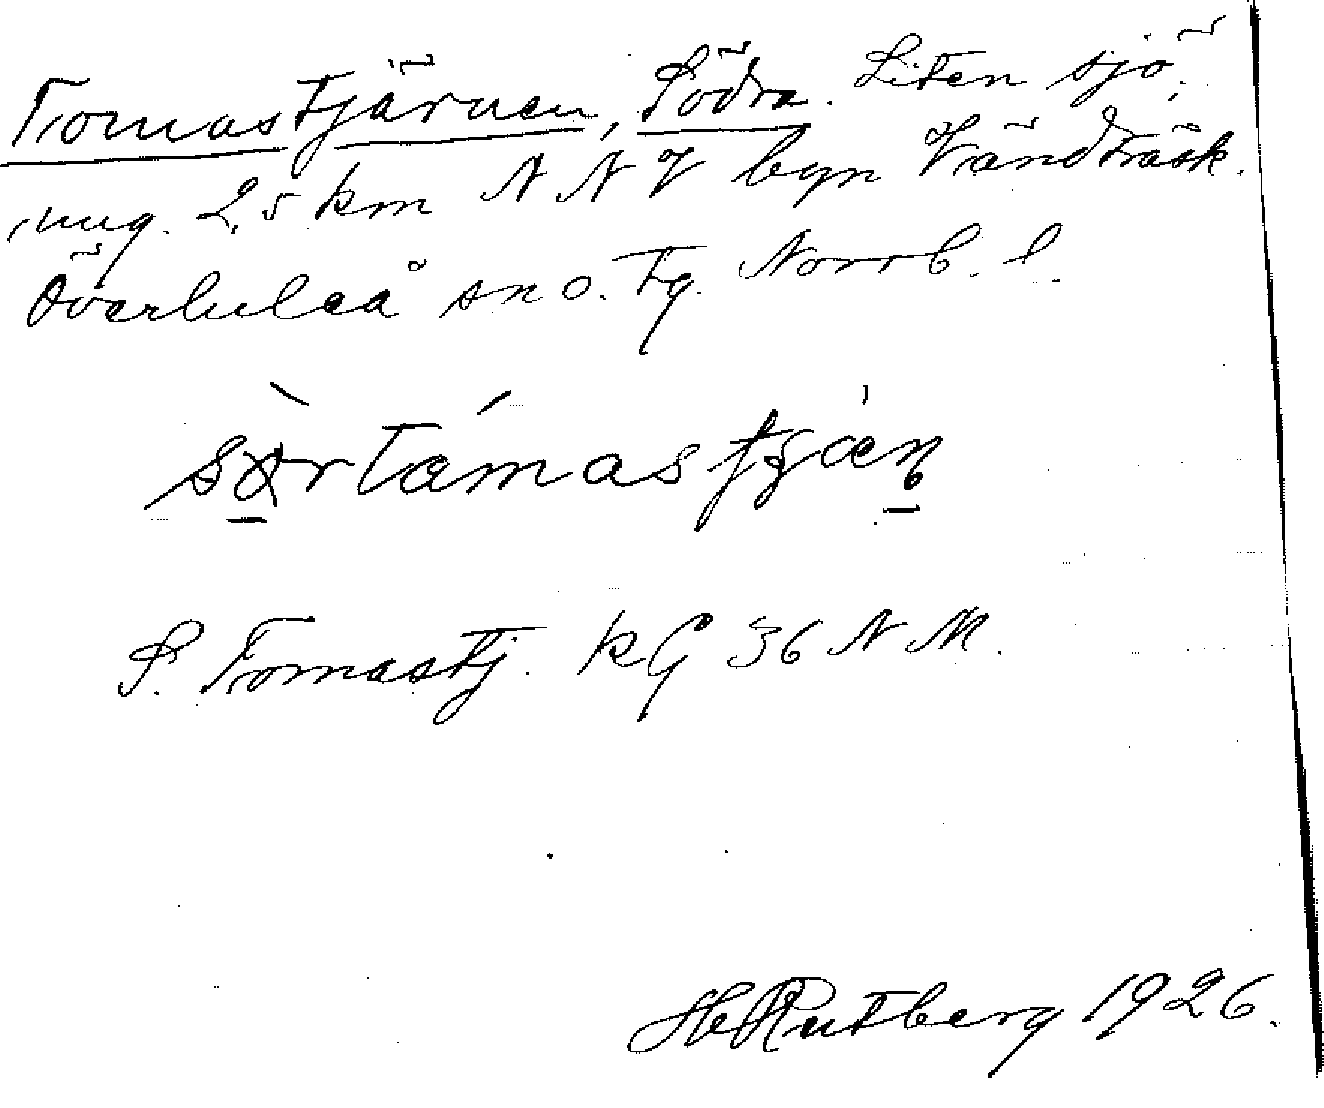 Tomastjärnen, Södra. Liten sjö,
ung. 2,5 km NNV byn Vändträsk.
Överluleå sn o. tg. Norrb. l.
sørtámastjæ̀n
S. Tomastj. kG 36 NM.
H Rutberg 1926.